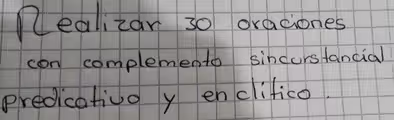 Realizar 30 oraciones
con complemento sincurstancial
predicativo y enclítico.